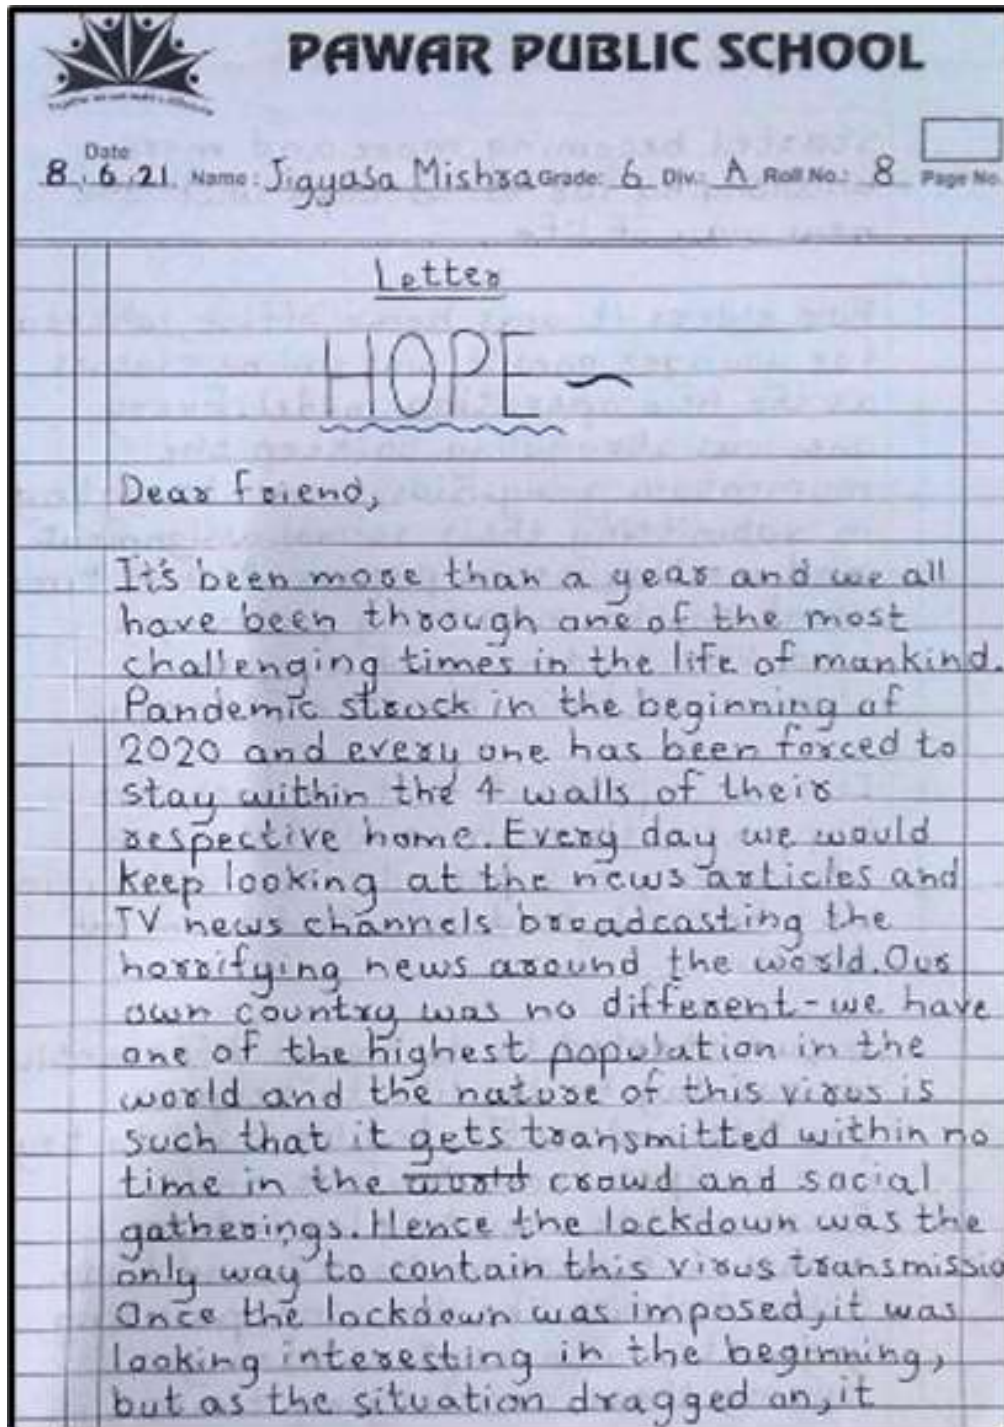 PAWAR PUBLIC SCHOOL
Date
8.6.21 Name: Jigyasa Mishra Grade: 6 Div.: A Roll No.: 8 Page No.
Letter
HOPE ~
Dear friend,
It's been more than a year and we all
have been through one of the most
challenging times in the life of mankind.
Pandemic struck in the beginning of
2020 and every one has been forced to
stay within the 4 walls of their
respective home. Every day we would
keep looking at the news articles and
TV news channels broadcasting the
horrifying news around the world. Our
own country was no different - we have
one of the highest population in the
world and the nature of this virus is
such that it gets transmitted within no
time in the world crowd and social
gatherings. Hence the lockdown was the
only way to contain this virus transmissio
Once the lockdown was imposed, it was
looking interesting in the beginning,
but as the situation dragged on, it